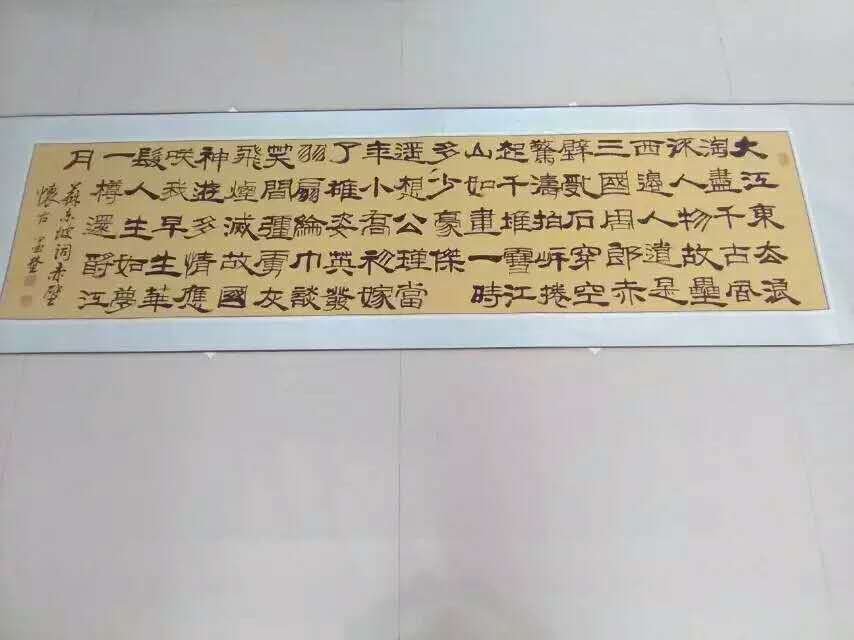 大江東去浪
淘盡千古風
流人物故壘
西邊人道是
三國周郎赤
壁亂石穿空
驚濤拍岸捲
起千堆雪江
山如畫一時
多少豪傑
遙想公瑾當
年小喬初嫁
了雄姿英發
羽扇綸巾談
笑間彊虜灰
飛煙滅故國
神遊多情應
咲我早生華
髮人生如夢
一樽還酹江
月
蘇東坡詞赤壁
懷古